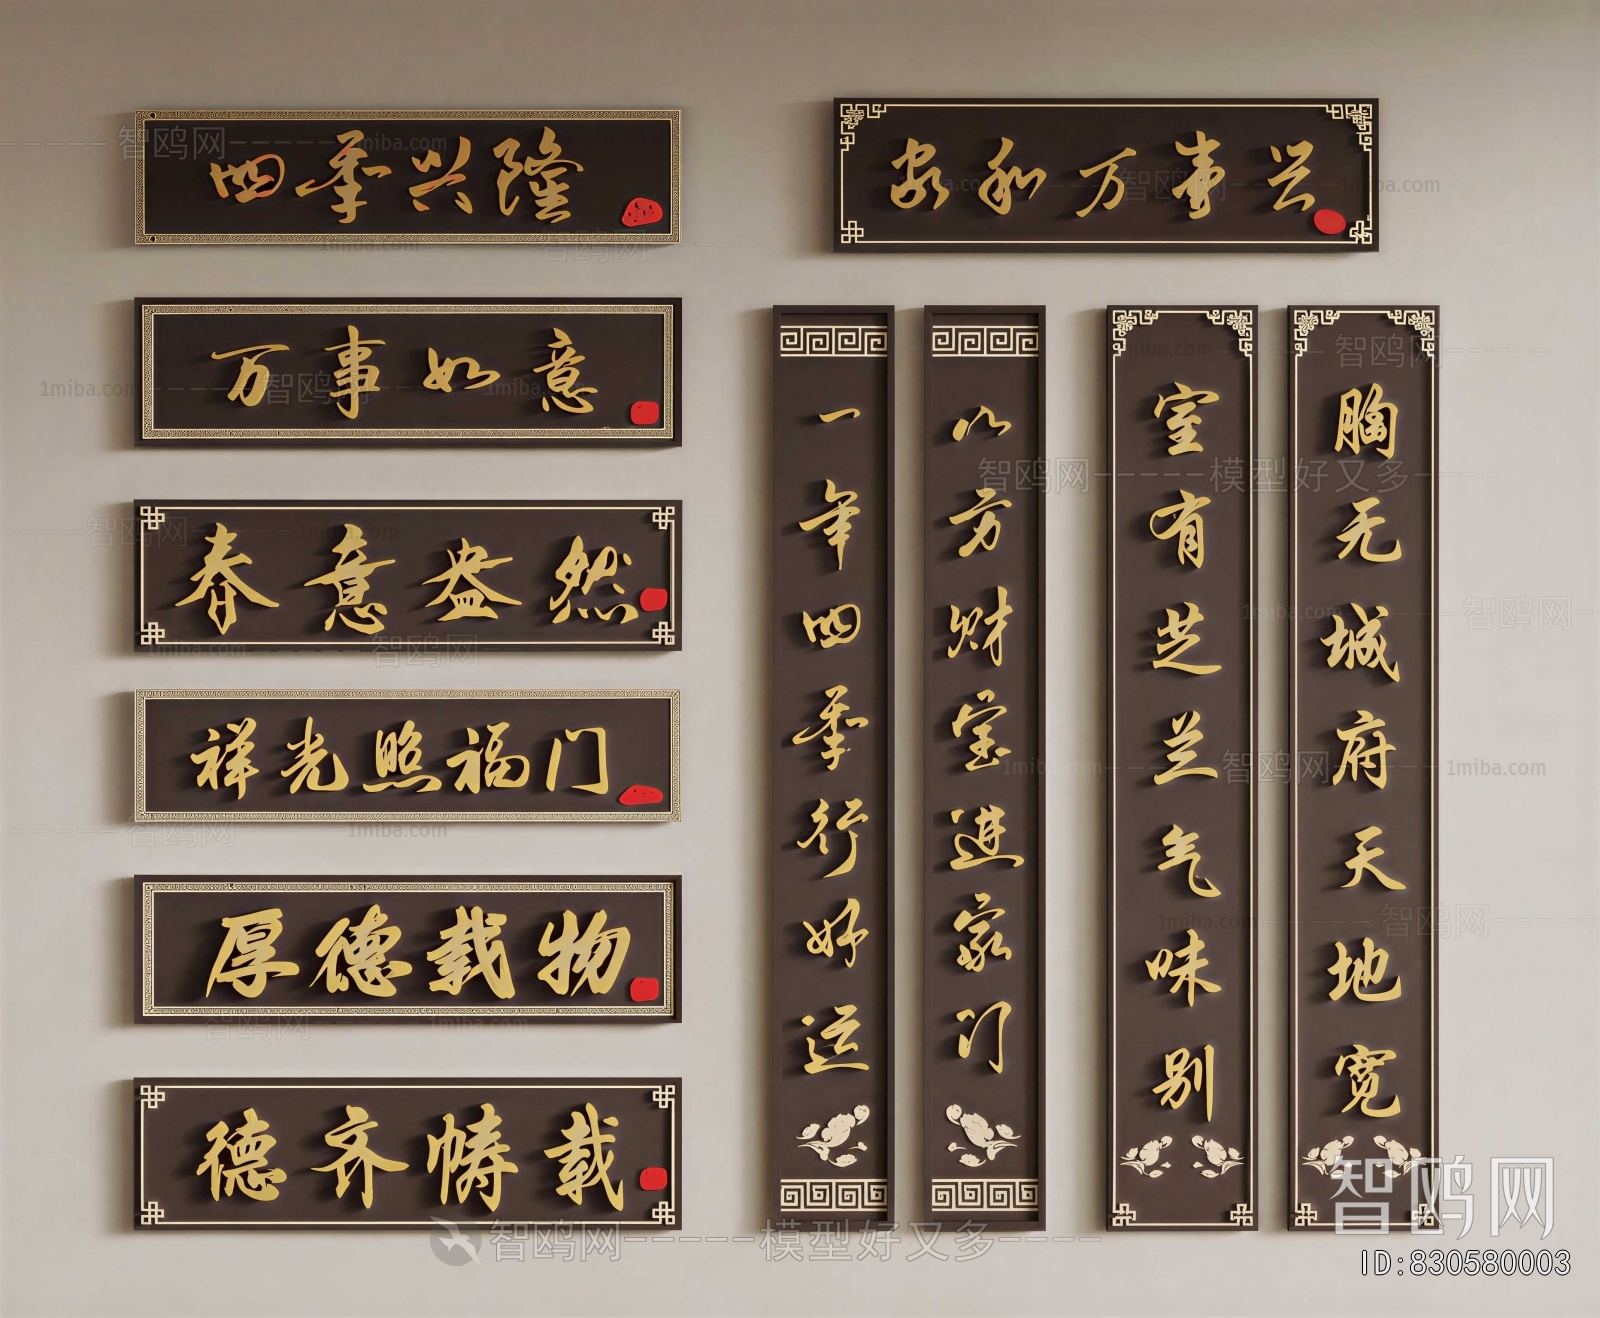 四季兴隆
万事如意
春意盎然
祥光照福门
厚德载物
德齐帱载
家和万事兴
一年四季行好运
八方财宝进家门
室有芝兰气味别
胸无城府天地宽
智鸥网
1miba.com
智鸥网-----模型好又多----
智鸥网
ID:830580003